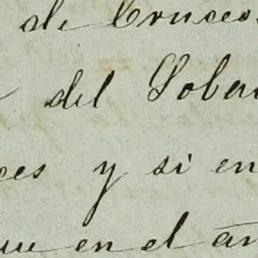 de Cruces
del Sobe
ces y si en
que en el an